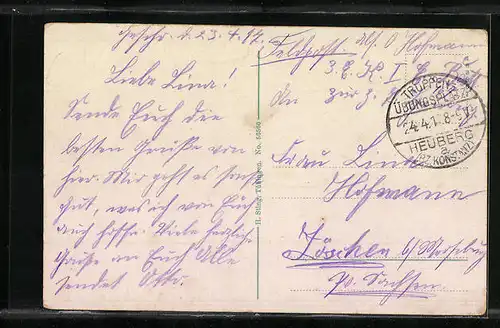 Geschr. d. 23.4.17.
Liebe Lina!
Sende Euch die
besten Grüße von
hier. Mir geht es
gut, was ich von Euch
auch hoffe. Viele herzliche
Grüße an Euch Alle
sendet Otto.
H. Sting, Tübingen. No.
Feldpost. Abs. O Hofmann
3. E. K. I
An zur Z.
TRUPPEN-
ÜBUNGSPLATZ
24.4.1 8-9
HEUBERG
a.
(BZ. KONSTANZ)
Frau Lina
Hofmann
Zöschen b/Merseburg
Pr. Sachsen